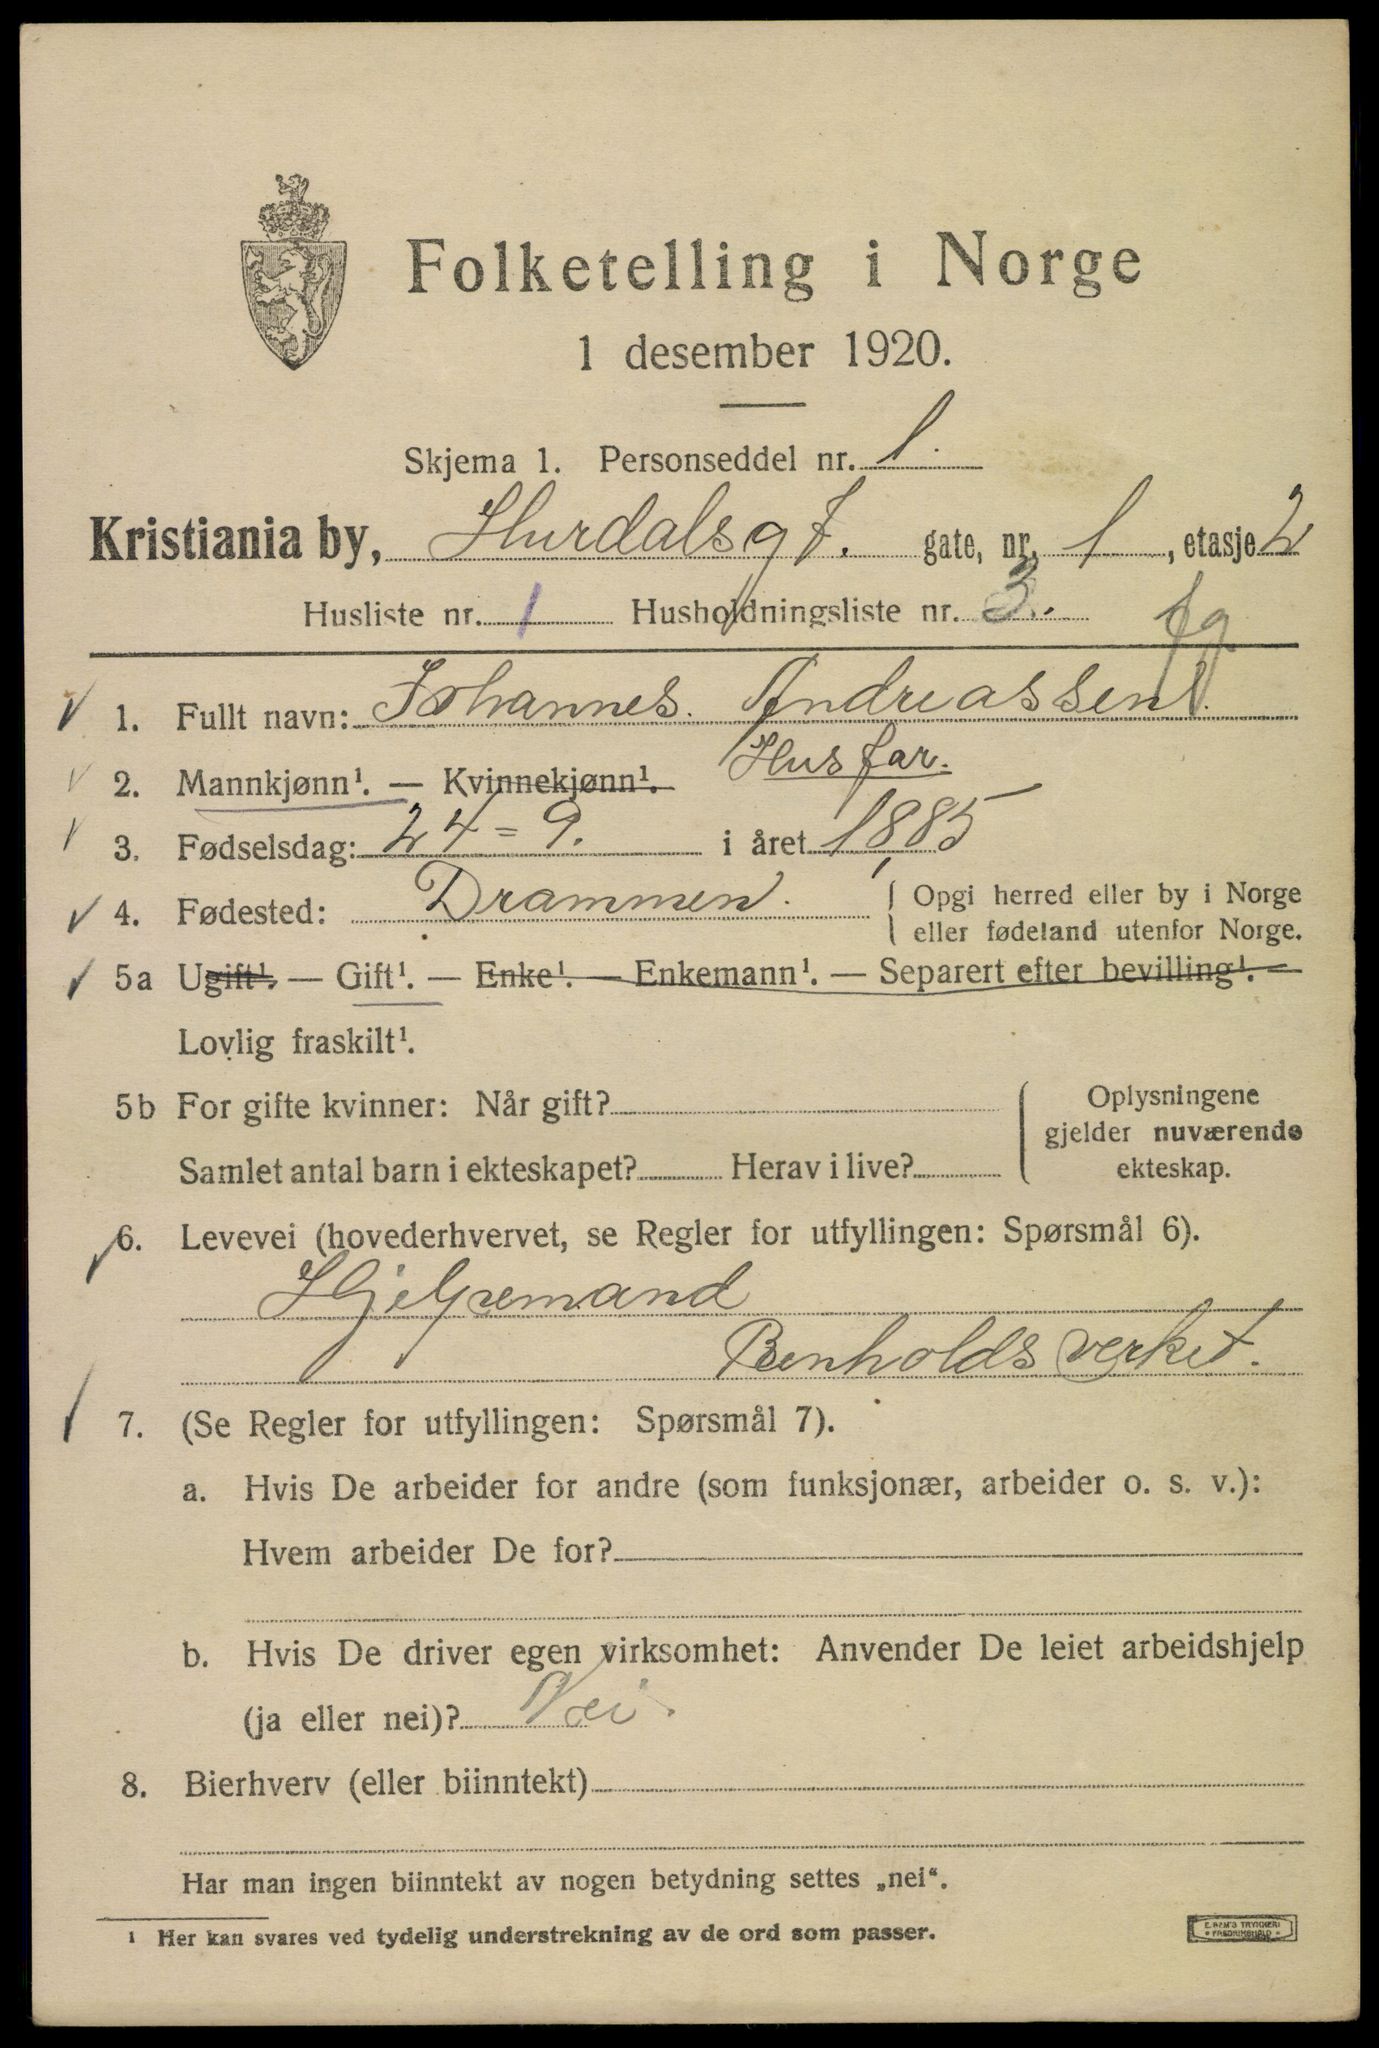 Folketelling i Norge
1 desember 1920.
Skjema 1. Personseddel nr. 1.
Kristiania by, Hurdalsgt. gate, nr. 1, etasje 2
Husliste nr. 1 Husholdningsliste nr. 3.
fg
1. Fullt navn: Johannes. Andreassen.
Husfar.
2. Mannkjønn¹. — Kvinnekjønn¹.
3. Fødselsdag: 24 = 9. i året 1885
4. Fødested: Drammen. Opgi herred eller by i Norge
eller fødeland utenfor Norge.
5a Ugift¹. — Gift¹. — Enke¹. — Enkemann¹. — Separert efter bevilling¹. —
Lovlig fraskilt¹.
5b For gifte kvinner: Når gift? Oplysningene
gjelder nuværende
Samlet antal barn i ekteskapet? Herav i live? ekteskap.
6. Levevei (hovederhvervet, se Regler for utfyllingen: Spørsmål 6).
Hjelpemand
Renholdsverket.
7. (Se Regler for utfyllingen: Spørsmål 7).
a. Hvis De arbeider for andre (som funksjonær, arbeider o. s. v.):
Hvem arbeider De for?
b. Hvis De driver egen virksomhet: Anvender De leiet arbeidshjelp
(ja eller nei)? Nei.
8. Bierhverv (eller biinntekt)
Har man ingen biinntekt av nogen betydning settes „nei“.
¹ Her kan svares ved tydelig understrekning av de ord som passer.
E. SEM'S TRYKKERI
FREDRIKSHALD